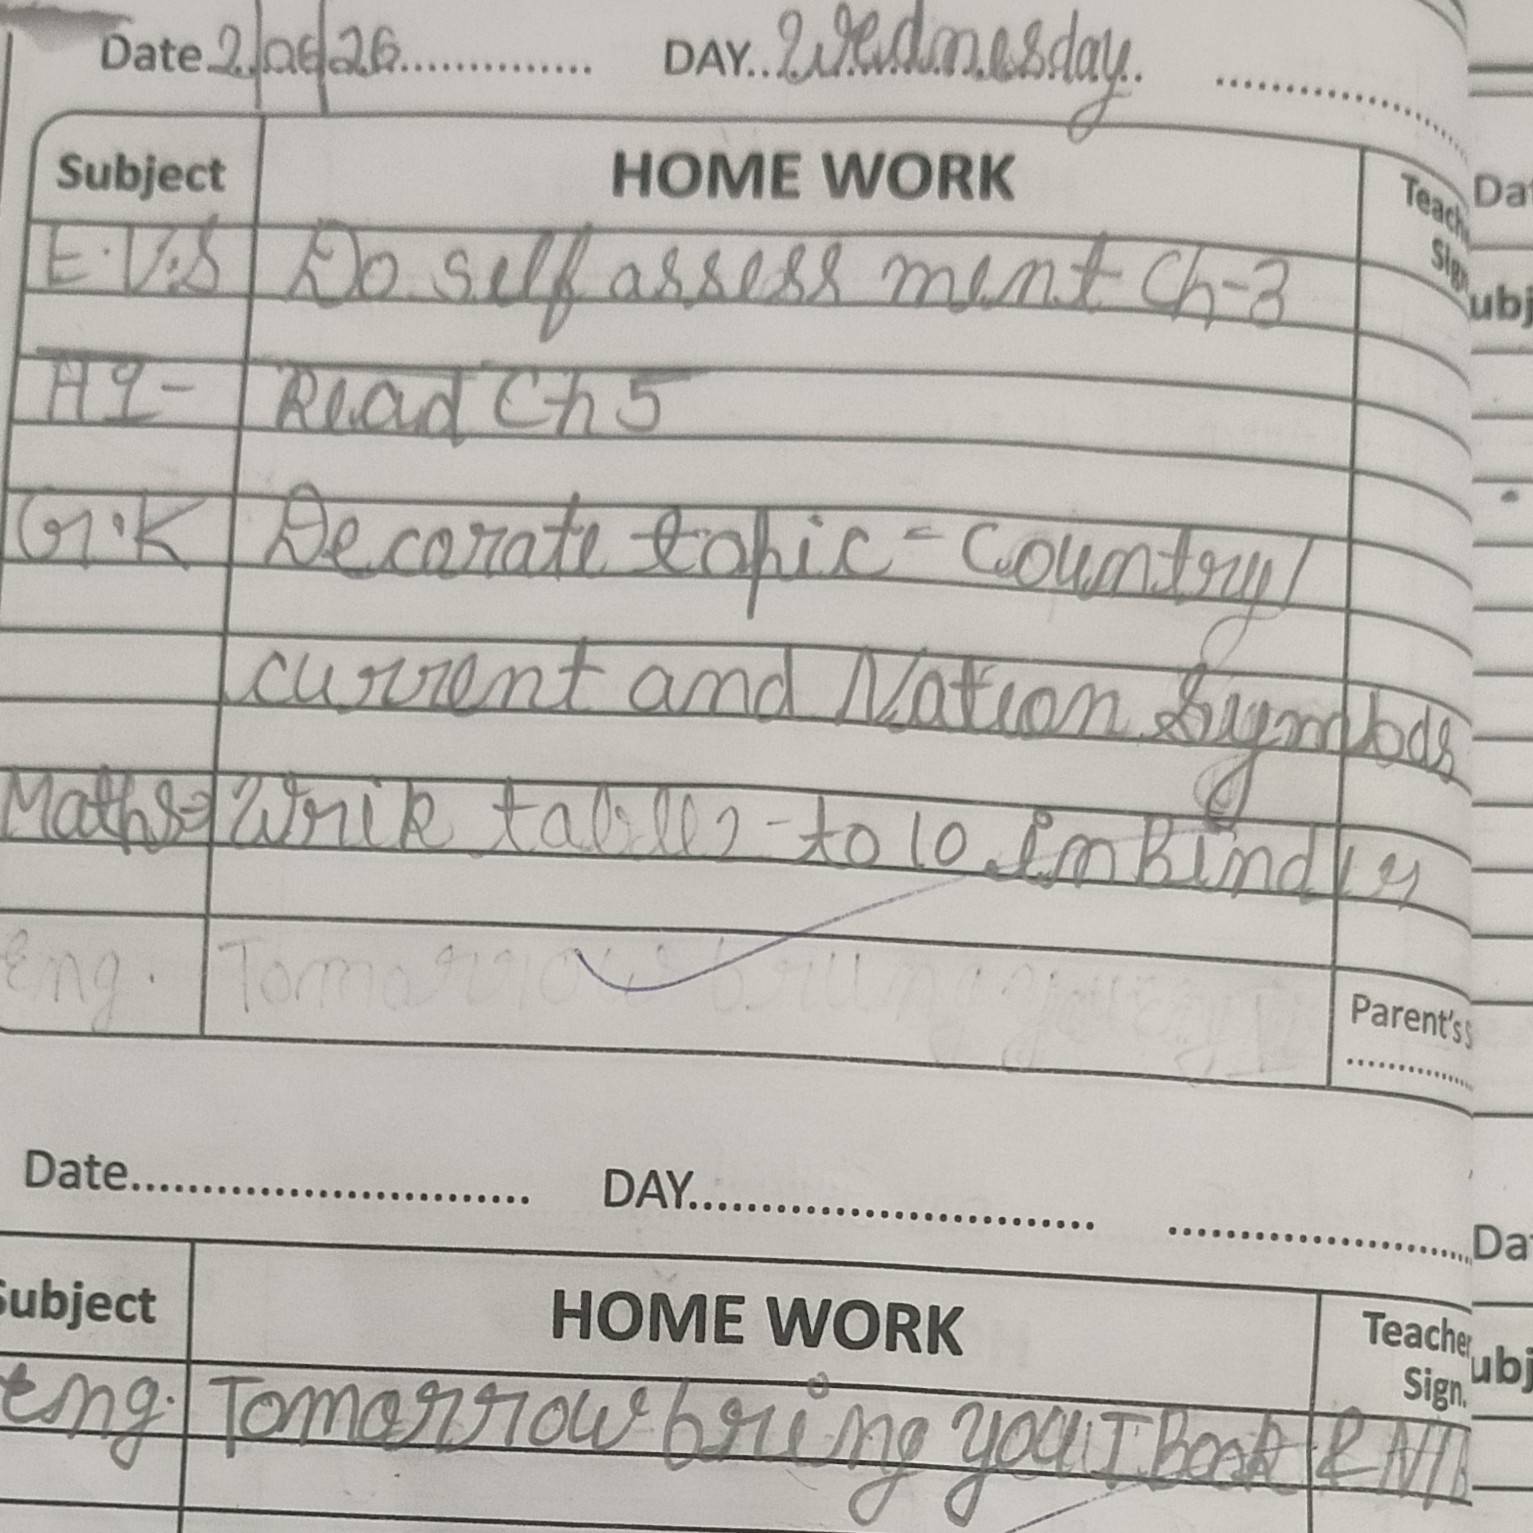 Date 2/06/26 DAY Wednesday
Subject HOME WORK Teach Sign
E.V.S Do self assessment Ch-3
AI- Read Ch 5
G.K Decorate topic = Country/
current and Nation Symbols
Maths Write tables 2 - to 10 in Bindly
Eng. Tomorrow bring your
Parent's S
Date DAY
Subject HOME WORK Teacher Sign.
Eng. Tomorrow bring your I Book & NTB
Da
ubj
Da
ubj